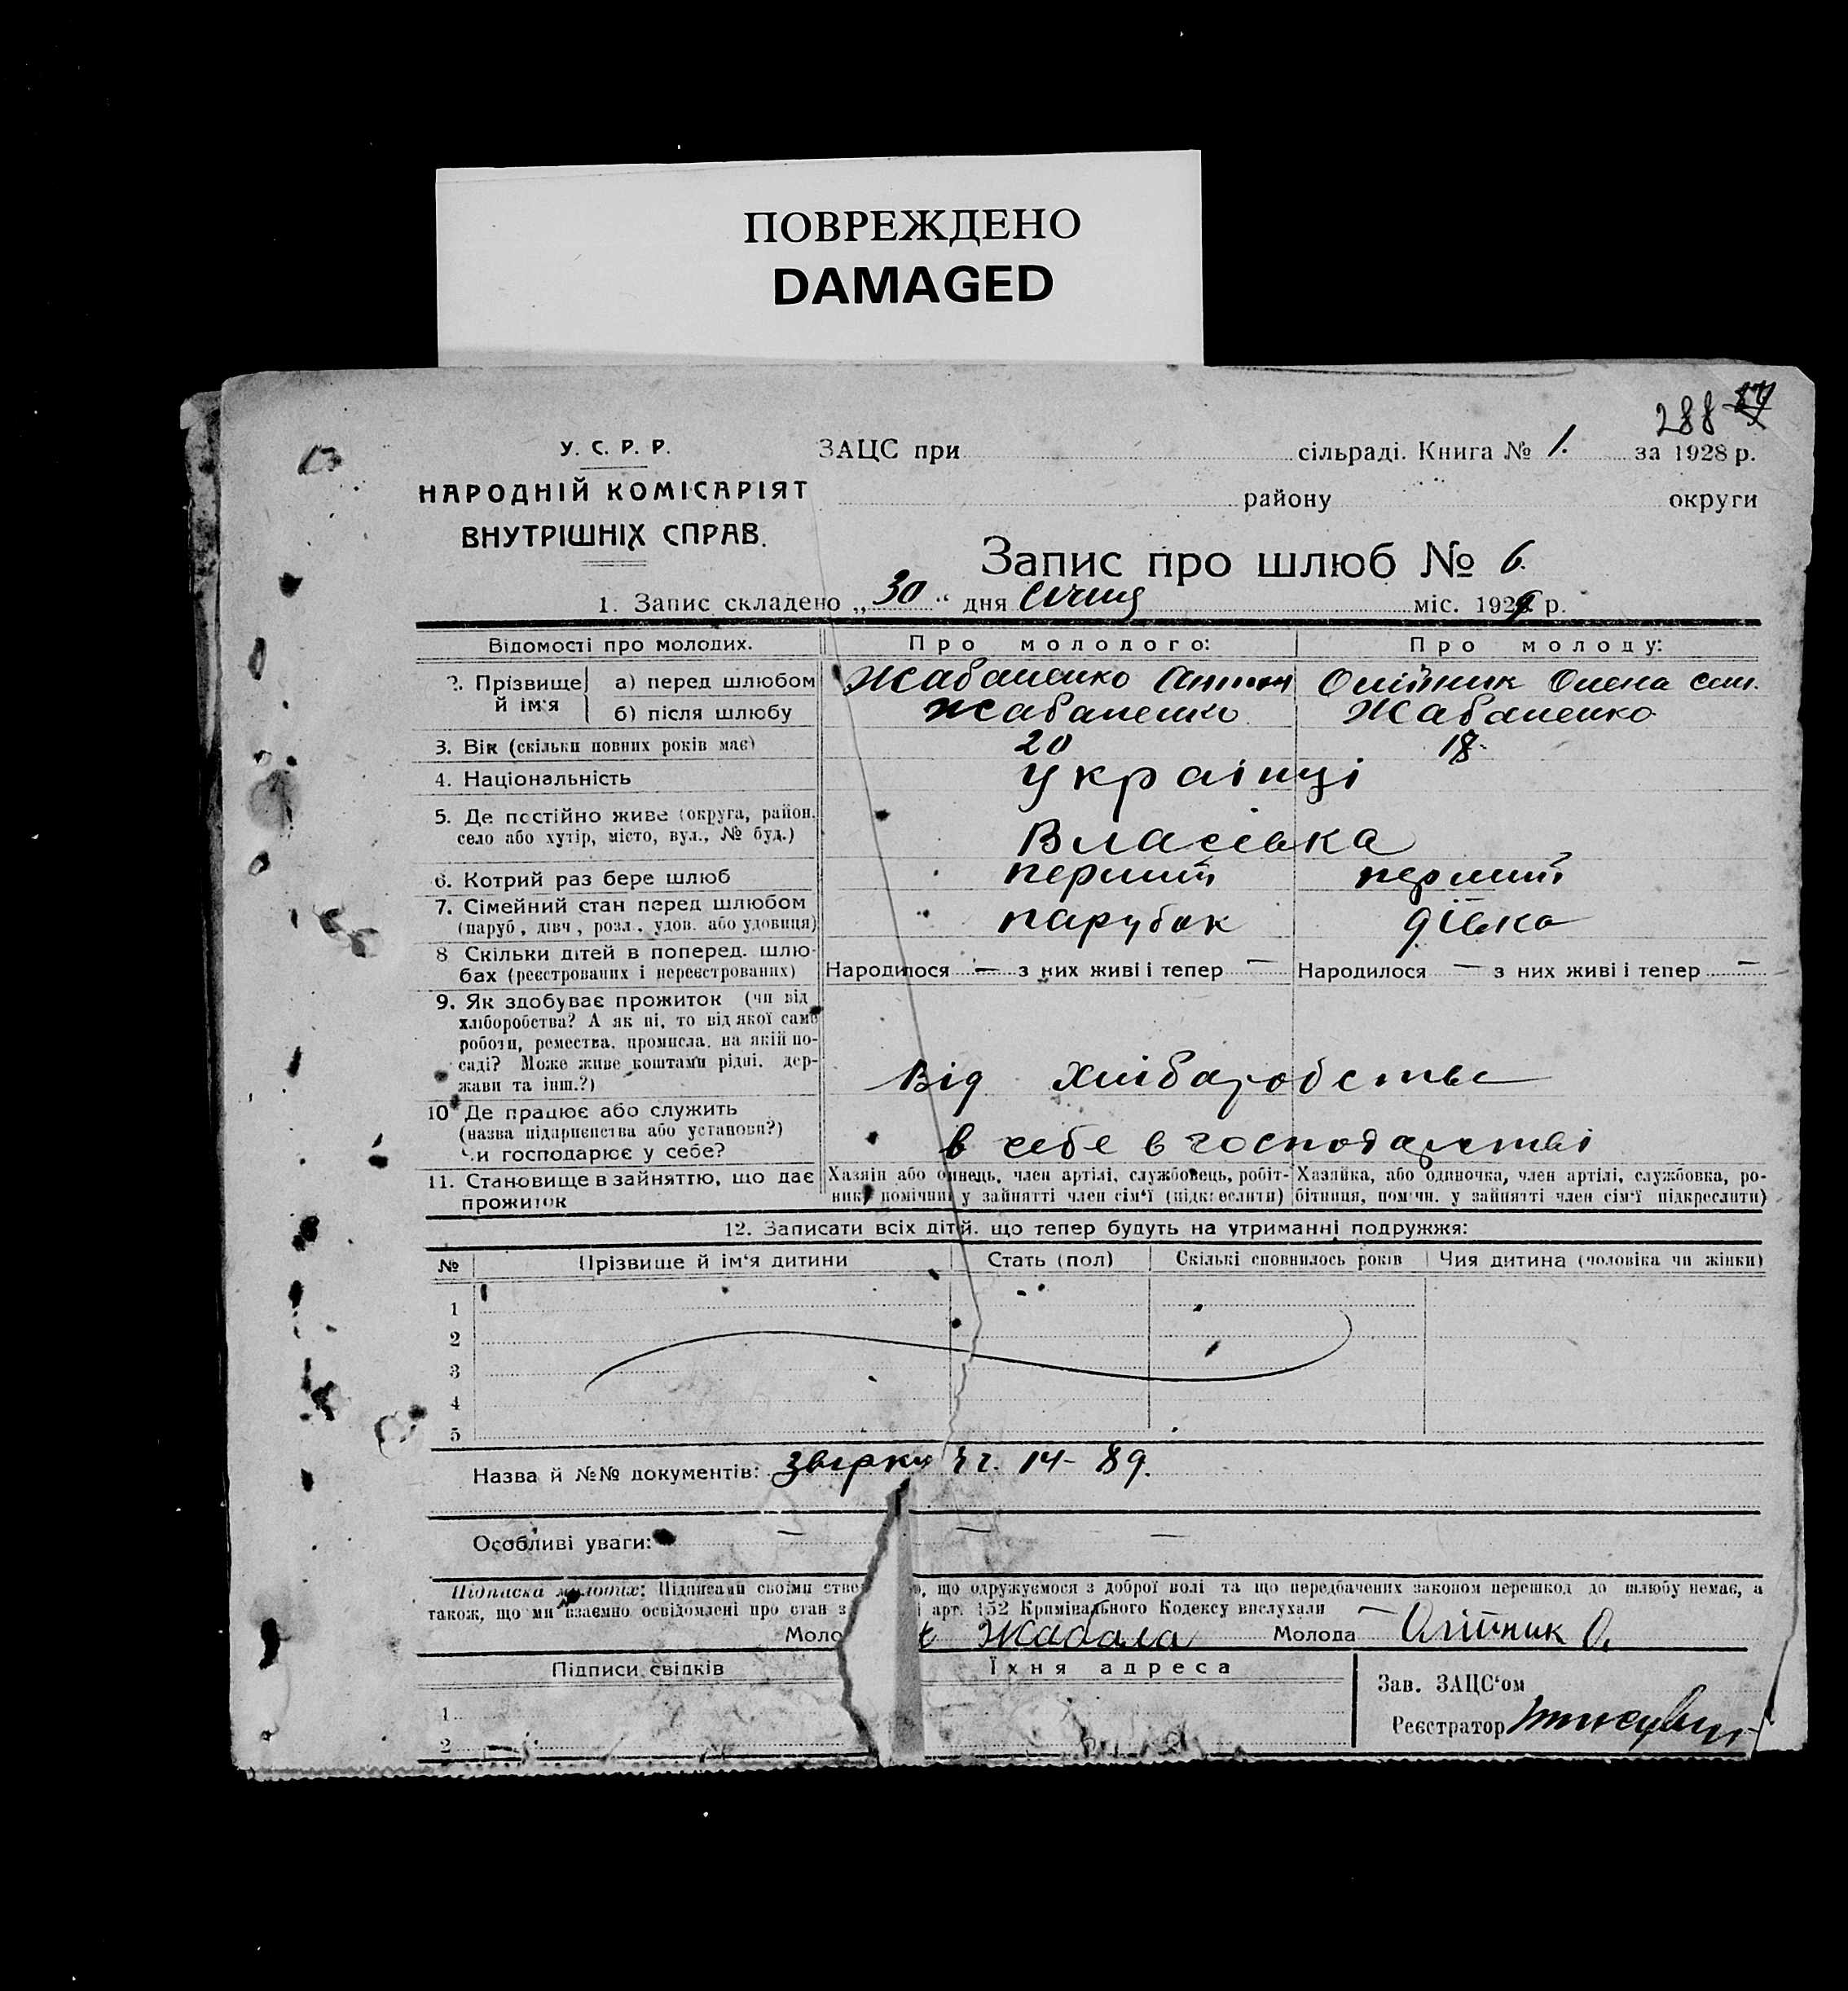 ПОВРЕЖДЕНО
DAMAGED
288
У. С. Р. Р.
НАРОДНІЙ КОМІСАРІЯТ
ВНУТРІШНІХ СПРАВ.
ЗАЦС при сільраді. Книга № 1. за 1928 р.
району округи
Запис про шлюб № 6.
1. Запис складено „30“ дня Січня міс. 1929 р.
Відомості про молодих. Про молодого: Про молоду:
2. Прізвище й ім'я а) перед шлюбом Жабаненко Антон Олійник Олена
б) після шлюбу Жабаненко Жабаненко
3. Вік (скільки повних років має) 20 18
4. Національність Українці
5. Де постійно живе (округа, район, село або хутір, місто, вул., № буд.) Власівка
6. Котрий раз бере шлюб перший перший
7. Сімейний стан перед шлюбом (паруб., дівч., розл., удов. або удовиця) парубок дівка
8 Скільки дітей в поперед. шлюбах (реєстрованих і нереєстрованих) Народилося — з них живі і тепер — Народилося — з них живі і тепер —
9. Як здобуває прожиток (чи від
хліборобства? А як ні, то від якої саме
роботи, ремества, промисла, на якій по-
саді? Може живе коштами рідні, дер-
жави та інш.?) Від хлібаробства
10 Де працює або служить
(назва підприємства або установи?)
Чи господарює у себе? в себе в господарстві
11. Становище в зайняттю, що дає прожиток
Хазяїн або одинець, член артілі, службовець, робіт-
ник, помічник у зайнятті член сім'ї (підкреслити)
Хазяйка, або одиночка, член артілі, службовка, ро-
бітниця, помічн. у зайнятті член сім'ї підкреслити)
12. Записати всіх дітій, що тепер будуть на утриманні подружжя:
№ Прізвище й ім'я дитини Стать (пол) Скількі сповнилось років Чия дитина (чоловіка чи жінки)
1
2
3
4
5
Назва й №№ документів: 14- 89.
Особливі уваги: — — —
Підписка молодих: Підписами своїми ство що одружуємося з доброї волі та що передбачених законом перешкод до шлюбу немає, а
також, що ми взаємно освідомлені про стан з арт. 152 Кримінального Кодексу вислухали
Моло Жабала Молода Олійник О.
Підписи свідків Їхня адреса
Зав. ЗАЦС'ом
1
Реєстратор
2